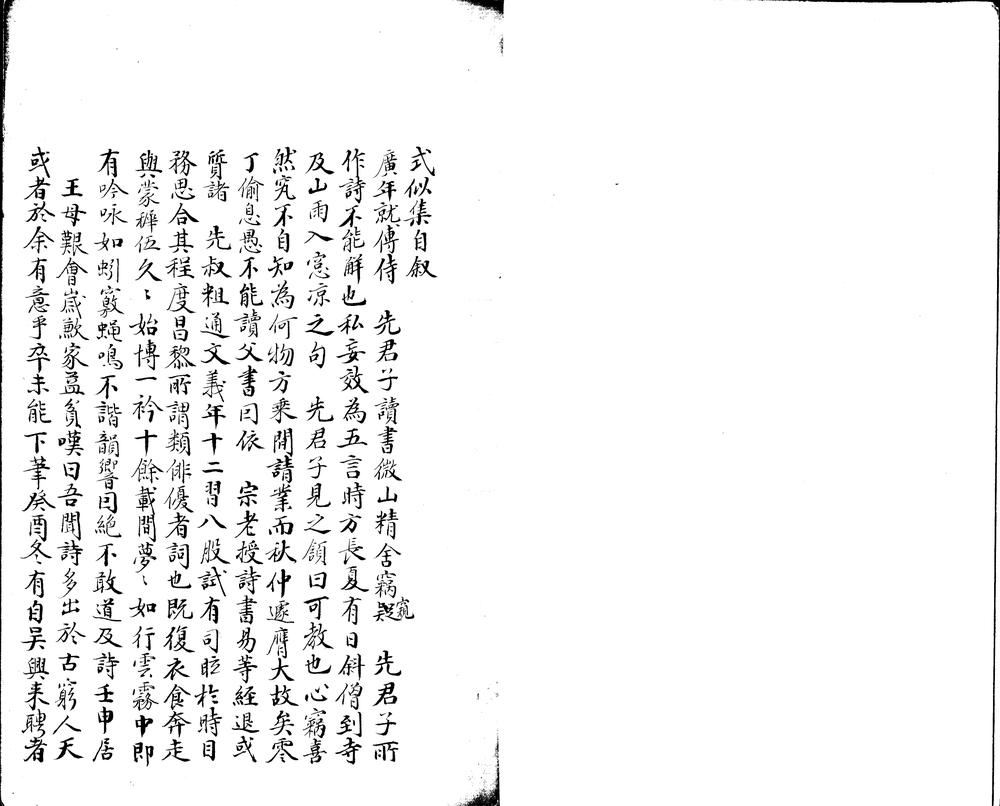 式似集自叙
廣年就傅侍　先君子讀書微山精舍竊窺　先君子所
作詩不能解也私妄效為五言時方長夏有日斜僧到寺
及山雨入窓凉之句　先君子見之頷曰可教也心竊喜
然究不自知為何物方乘閒請業而秋仲遽膺大故矣零
丁偷息愚不能讀父書曰依　宗老授詩書易等經退或
質諸　先叔粗通文義年十二習八股試有司眩於時目
務思合其程度昌黎所謂類俳優者詞也既復衣食奔走
與蒙稺伍久〻始博一衿十餘載間夢〻如行雲霧中即
有吟咏如蚓竅蝇鳴不諧韻響曰絶不敢道及詩壬申居
王母艱會歲歉家益貧嘆曰吾聞詩多出於古窮人天
或者於余有意乎卒未能下筆癸酉冬有自吴興来聘者